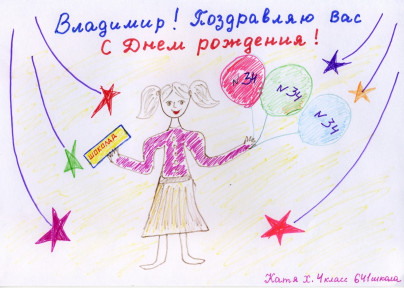 Владимир! Поздравляю Вас
С Днем рождения!
N34
N34
N34
шоколад
Катя Х. 4 класс 641 школа